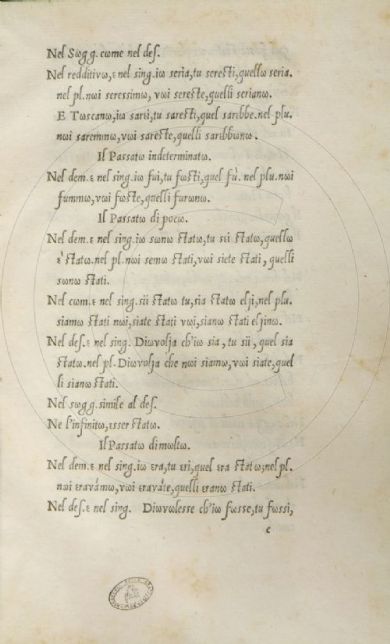 Nel Sωgg. cωme nel deſ.
Nel redditivω, ε nel sing. iω seria, tu seresti, quellω seria.
nel pl. nωi seressimω, vωi sereste, quelli serianω.
E Tωscanω, iω sarei, tu saresti, quel saribbe. nel plu.
nωi saremmω, vωi sareste, quelli saribbωnω.
Il Passatω indeterminatω.
Nel dem. ε nel sing. iω fui, tu fωsti, quel fù. nel plu. nωi
fummω, vωi fωste, quelli furωnω.
Il Passatω di pocω.
Nel dem. ε nel sing. iω sωnω statω, tu sεi statω, quellω
ε' statω. nel pl. nωi semω stati, vωi siete stati, quelli
sωnω stati.
Nel cωm. ε nel sing. sii statω tu, sia statω elji, nel plu.
siamω stati nωi, siate stati vωi, sianω stati eljinω.
Nel deſ. ε nel sing. Diωvolja ch'iω sia, tu sii, quel sia
statω. nel pl. Diωvolja che nωi siamω, vωi siate, quel
li sianω stati.
Nel sωgg. simile al deſ.
Ne l'infinitω, εsser statω.
Il Passatω di mωltω.
Nel dem. ε nel sing. iω εra, tu εri, quel εra statω, nel pl.
nωi εravámω, vωi εraváte, quelli εranω stati.
Nel deſ. ε nel sing. Diωvωlesse ch'iω fωsse, tu fωssi,
c